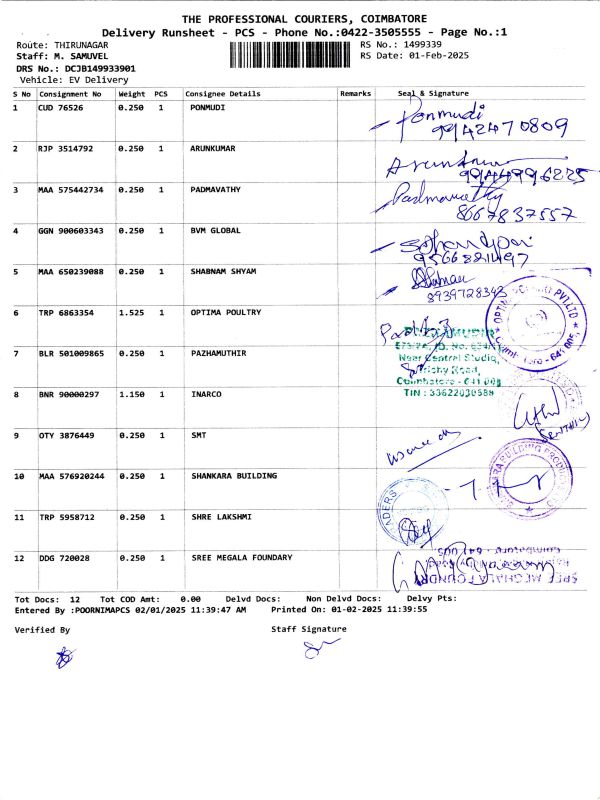 THE PROFESSIONAL COURIERS, COIMBATORE
Delivery Runsheet - PCS - Phone No.:0422-3505555 - Page No.:1
Route: THIRUNAGAR
RS No.: 1499339
Staff: M. SAMUVEL
RS Date: 01-Feb-2025
DRS No.: DCJB149933901
Vehicle: EV Delivery
S No Consignment No Weight PCS Consignee Details Remarks Seal & Signature
1 CUD 76526 0.250 1 PONMUDI Ponmudi
9942470809
2 RJP 3514792 0.250 1 ARUNKUMAR
9944996225
3 MAA 575442734 0.250 1 PADMAVATHY Padmavathy
8667837557
4 GGN 900603343 0.250 1 BVM GLOBAL
9566821497
5 MAA 650239088 0.250 1 SHABNAM SHYAM
8939728343
6 TRP 6863354 1.525 1 OPTIMA POULTRY
7 BLR 501009865 0.250 1 PAZHAMUTHIR
Near Central Studio,
Trichy Road,
Coimbatore - 641 005
TIN : 33622030588
8 BNR 90000297 1.150 1 INARCO
9 OTY 3876449 0.250 1 SMT
10 MAA 576920244 0.250 1 SHANKARA BUILDING
11 TRP 5958712 0.250 1 SHRE LAKSHMI
12 DDG 720028 0.250 1 SREE MEGALA FOUNDARY
SREE MEGHALA FOUNDRY
Tot Docs: 12 Tot COD Amt: 0.00 Delvd Docs: Non Delvd Docs: Delvy Pts:
Entered By :POORNIMAPCS 02/01/2025 11:39:47 AM Printed On: 01-02-2025 11:39:55
Verified By
Staff Signature